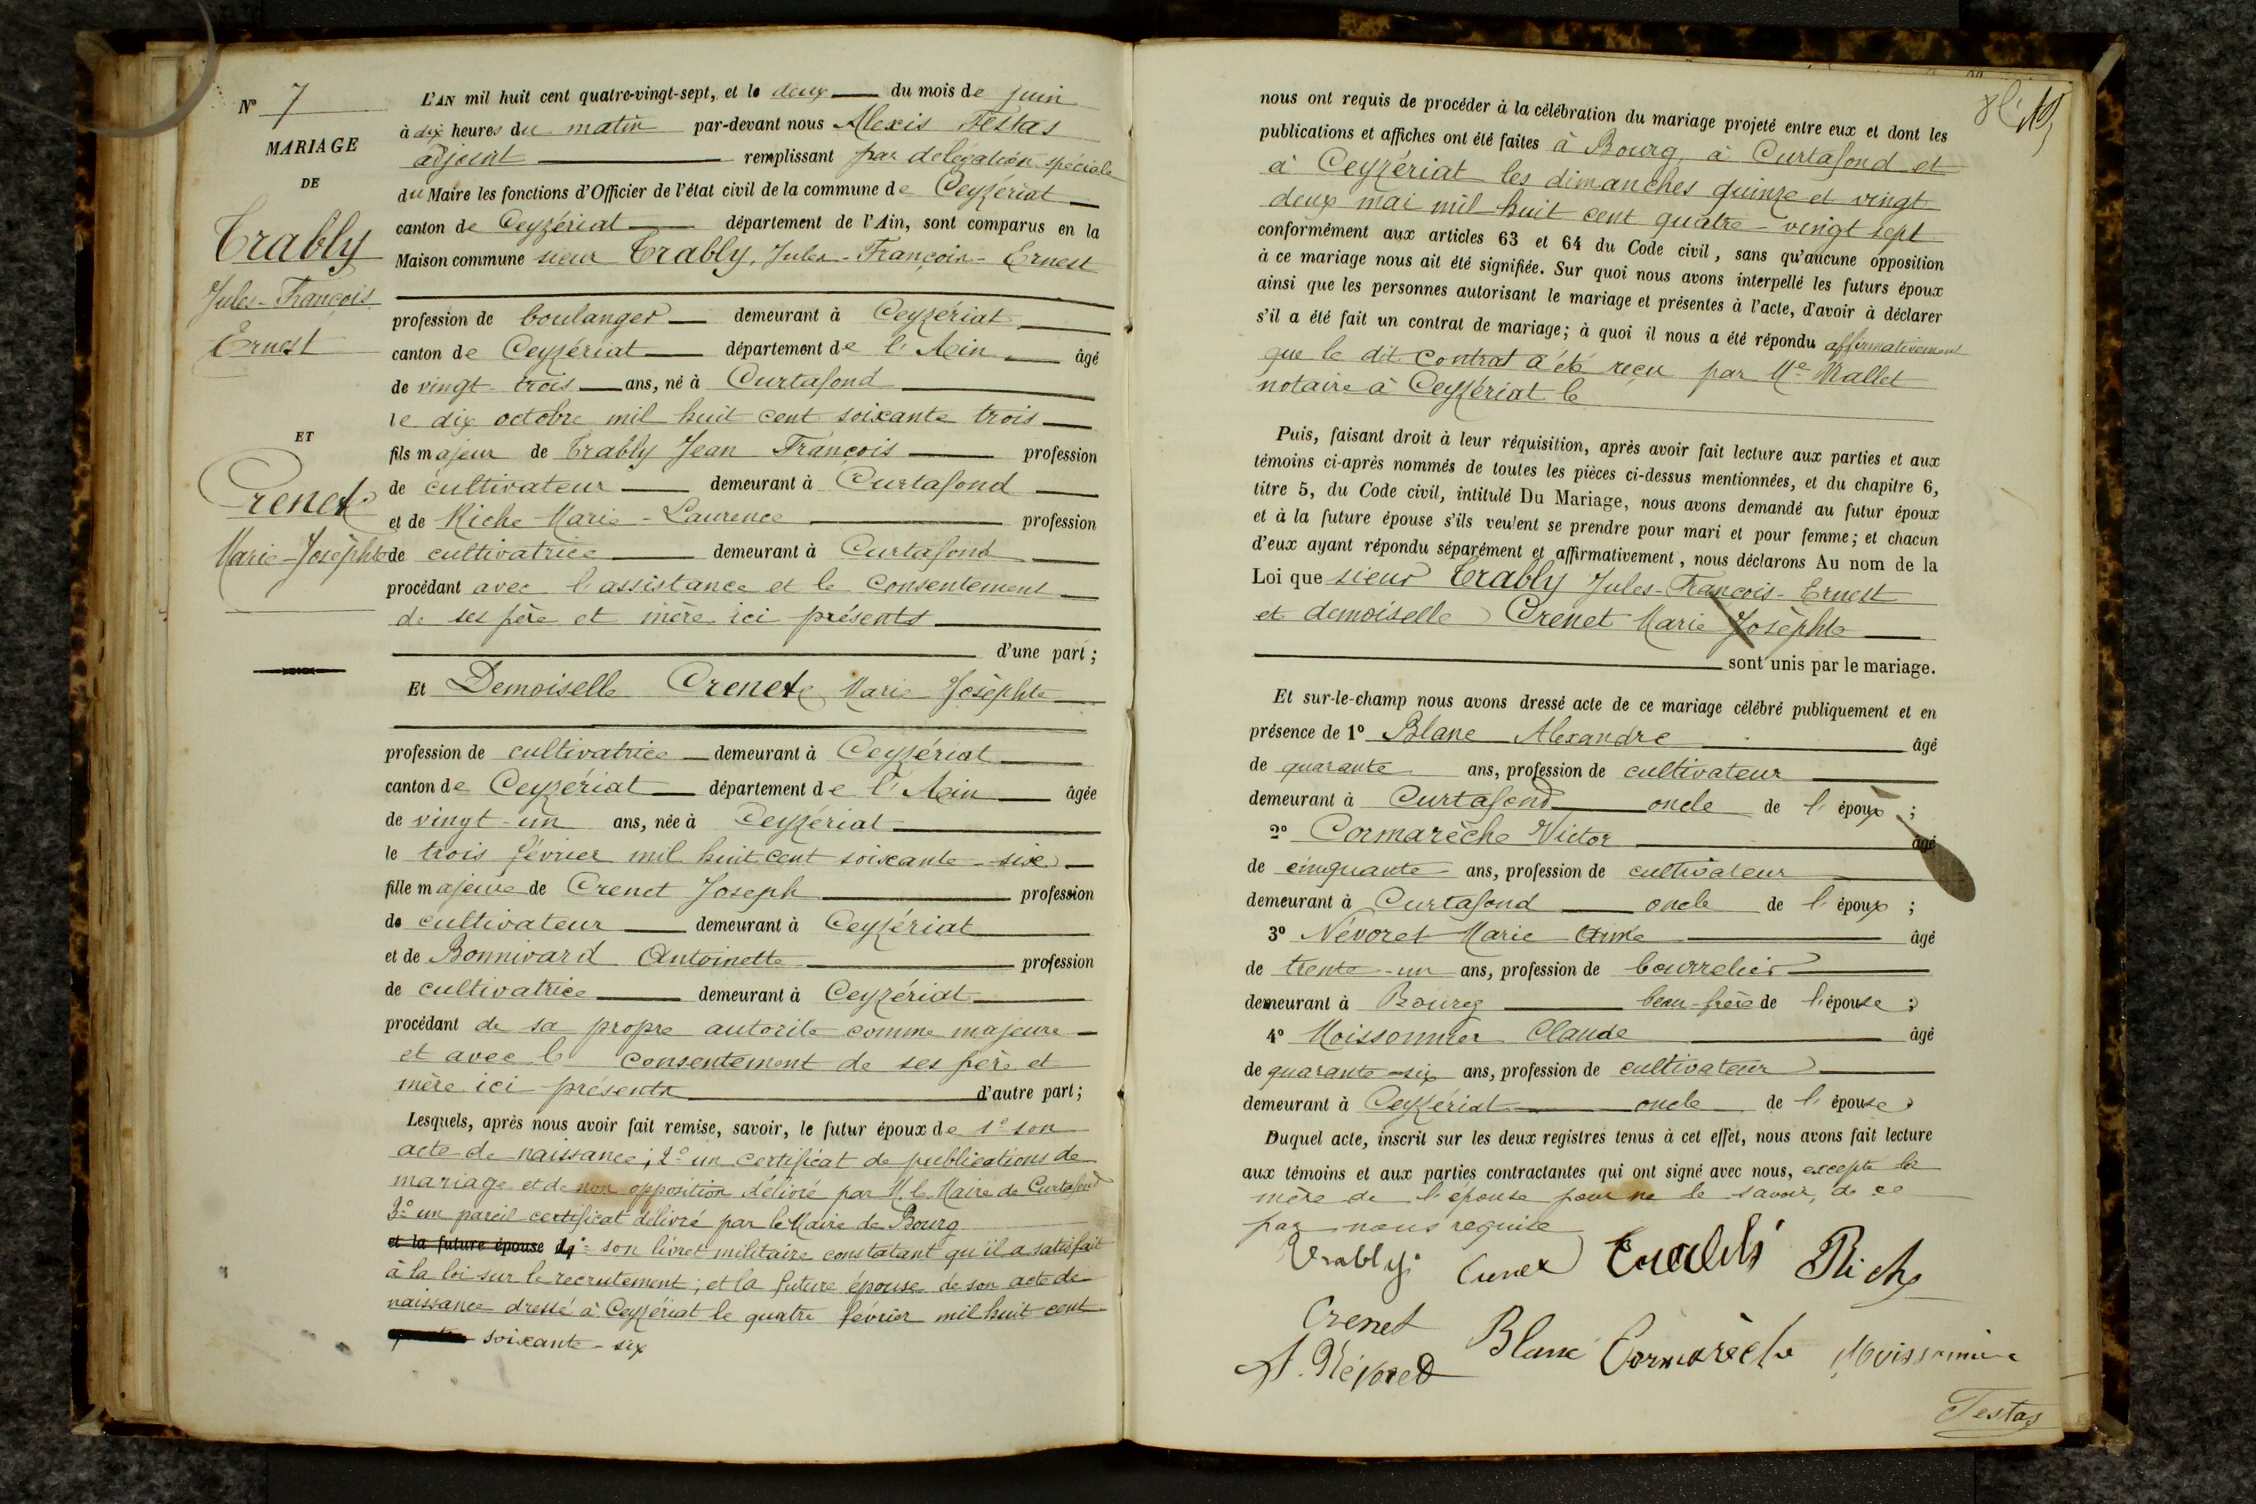 N° 7
MARIAGE
DE
Trably
Jules-François
Ernest
ET
Crenet
Marie-Josèphte
L'AN mil huit cent quatre-vingt-sept, et le deux du mois de juin
à dix heures du matin par-devant nous Alexis Testas
adjoint remplissant par délégation spéciale
du Maire les fonctions d'Officier de l'état civil de la commune de Ceyzériat
canton de Ceyzériat département de l'Ain, sont comparus en la
Maison commune sieur Trably, Jules-François-Ernest
profession de boulanger demeurant à Ceyzériat
canton de Ceyzériat département de l'Ain âgé
de vingt-trois ans, né à Curtafond
le dix octobre mil huit cent soixante trois
fils majeur de Trably Jean François profession
de cultivateur demeurant à Curtafond
et de Riche Marie-Laurence profession
de cultivatrice demeurant à Curtafond
procédant avec l'assistance et le consentement
de ses père et mère ici présents
d'une part;
Et Demoiselle Crenet Marie Josèphte
profession de cultivatrice demeurant à Ceyzériat
canton de Ceyzériat département de l'Ain âgée
de vingt-un ans, née à Ceyzériat
le trois février mil huit cent soixante-six
fille majeure de Crenet Joseph profession
de cultivateur demeurant à Ceyzériat
et de Bonnivard Antoinette profession
de cultivatrice demeurant à Ceyzériat
procédant de sa propre autorité comme majeure
et avec le consentement de ses père et
mère ici présents d'autre part;
Lesquels, après nous avoir fait remise, savoir, le futur époux de 1° son
acte de naissance; 2° un certificat de publications de
mariage et de non opposition délivré par M. le Maire de Curtafond
3° un pareil certificat délivré par le Maire de Bourg
et la future épouse 4° son livret militaire constatant qu'il a satisfait
à la loi sur le recrutement; et la future épouse de son acte de
naissance dressé à Ceyzériat le quatre février mil huit cent
soixante-six
nous ont requis de procéder à la célébration du mariage projeté entre eux et dont les
publications et affiches ont été faites à Bourg, à Curtafond et
à Ceyzériat les dimanches quinze et vingt
deux mai mil huit cent quatre-vingt sept
conformément aux articles 63 et 64 du Code civil, sans qu'aucune opposition
à ce mariage nous ait été signifiée. Sur quoi nous avons interpellé les futurs époux
ainsi que les personnes autorisant le mariage et présentes à l'acte, d'avoir à déclarer
s'il a été fait un contrat de mariage; à quoi il nous a été répondu affirmativement
que le dit contrat a été reçu par Me Mallet
notaire à Ceyzériat le
Puis, faisant droit à leur réquisition, après avoir fait lecture aux parties et aux
témoins ci-après nommés de toutes les pièces ci-dessus mentionnées, et du chapitre 6,
titre 5, du Code civil, intitulé Du Mariage, nous avons demandé au futur époux
et à la future épouse s'ils veulent se prendre pour mari et pour femme; et chacun
d'eux ayant répondu séparément et affirmativement, nous déclarons Au nom de la
Loi que sieur Trably Jules-François-Ernest
et demoiselle Crenet Marie Josèphte
sont unis par le mariage.
Et sur-le-champ nous avons dressé acte de ce mariage célébré publiquement et en
présence de 1° Blanc Alexandre âgé
de quarante ans, profession de cultivateur
demeurant à Curtafond oncle de l'époux;
2° Cormarèche Victor âgé
de cinquante ans, profession de cultivateur
demeurant à Curtafond oncle de l'époux;
3° Névoret Marie Aimé âgé
de trente-un ans, profession de bourrelier
demeurant à Bourg beau-frère de l'épouse;
4° Moissonnier Claude âgé
de quarante-six ans, profession de cultivateur
demeurant à Ceyzériat oncle de l'épouse
Duquel acte, inscrit sur les deux registres tenus à cet effet, nous avons fait lecture
aux témoins et aux parties contractantes qui ont signé avec nous, excepté la
mère de l'épouse pour ne le savoir, de ce
par nous requise
Trably Crenet Trably Riche
Crenet
Blanc Cormarèche Moissonnier
A. Névoret
Testas